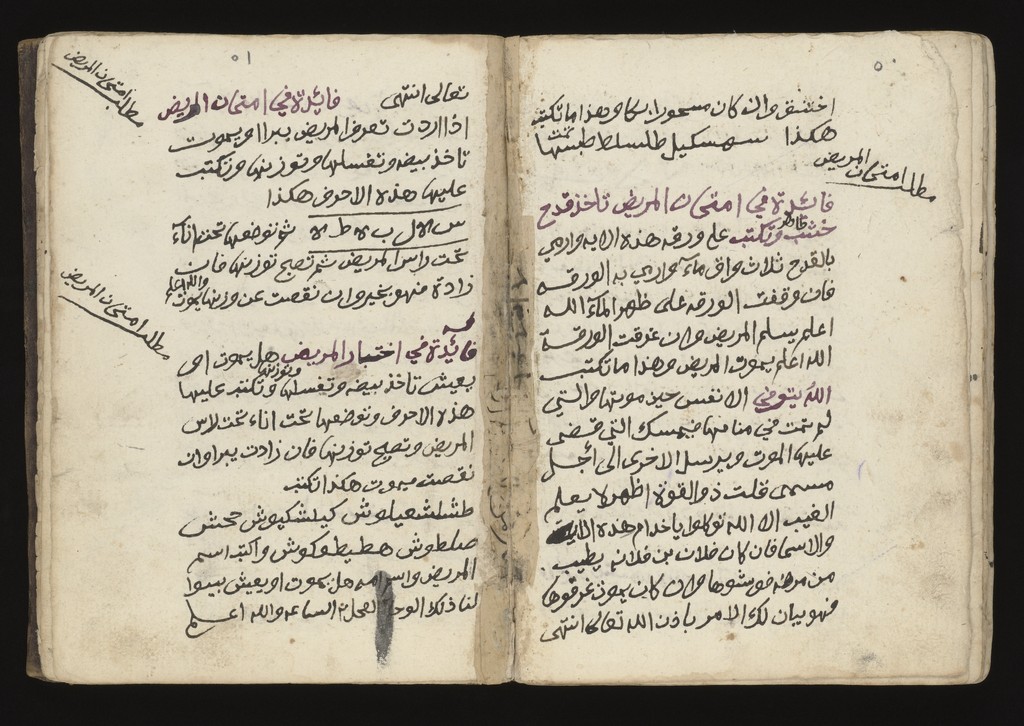 ٥٠
اختنق وان كان مسحورا بكا وهذا ما تكتب
هكذا سهسكيل طلسلط طبتتها
مطلب امتحان المريض
فائدة في امتحان المريض تاخذ قدح
خشب وتكتب علي ورقه هذه الايه وارمي
بالقدح ثلاث واق ماء وارمي به الورقه
فان وقفت الورقه على ظهر الماء الله
اعلم يسلم المريض وان غرقت الورقة
الله اعلم يموت المريض وهذا ما تكتب
الله يتوفي الانفس حين موتها والتي
لم تمت في منامها فيمسك التي قضى
عليها الموت ويرسل الاخرى الى اجل
مسمى قلت ذو القوة اظهر لا يعلم
الغيب الا الله توكلوا يا خدام هذه الاية
والاسما فان كان فلان بن فلانه يطيب
من مرضه فوشوها وان كان يموت غرقوها
فهو بيان لك الامر باذن الله تعالى انتهى
٥١
مطلب امتحان المريض
تعالى انتهى فائدة في امتحان المريض
اذا اردت تعرف المريض يبرا او يموت
تاخذ بيضه وتغسلها وتوزنها وتكتب
عليها هذه الاحرف هكذا
س ه ال ب ه ط ه ثم توضعها تحت اناء
تحت راس المريض ثم تصبح توزنها فان
زادة فهو بخير وان نقصت عن وزنها يموت والله اعلم
مطلب امتحان المريض
فائدة في اختبار المريض هل يموت او
يعيش تاخذ بيضه وتغسلها وتوزنها وتكتب عليها
هذه الاحرف وتوضعها تحت اناء تحت راس
المريض وتصبح توزنها فان زادت يبرا وان
نقصت يموت هكذا تكتب
طشلشعيلوش كيلشكپوش جحش
صلطوش هطيطفكوش واكتب اسم
المريض واسم امه هل يموت او يعيش بينوا
لنا ذلك الوحا العجل الساعه والله اعلم